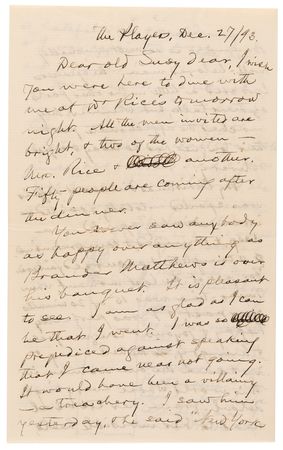 The Players, Dec. 27/93.
Dear old Susy dear, I wish
you were here to dine with
me at Dr Rice's to-morrow
night. All the men invited are
bright, & two of the women —
Mrs. Rice & another.
Fifty people are coming after
the dinner.
You never saw anybody
as happy over anything as
Brander Matthews is over
his banquet. It is pleasant
to see. I am as glad as I can
be that I went. I was so
prejudiced against speaking
that I came near not going.
It would have been a villainy
— a treachery. I saw him
yesterday, & he said "New York